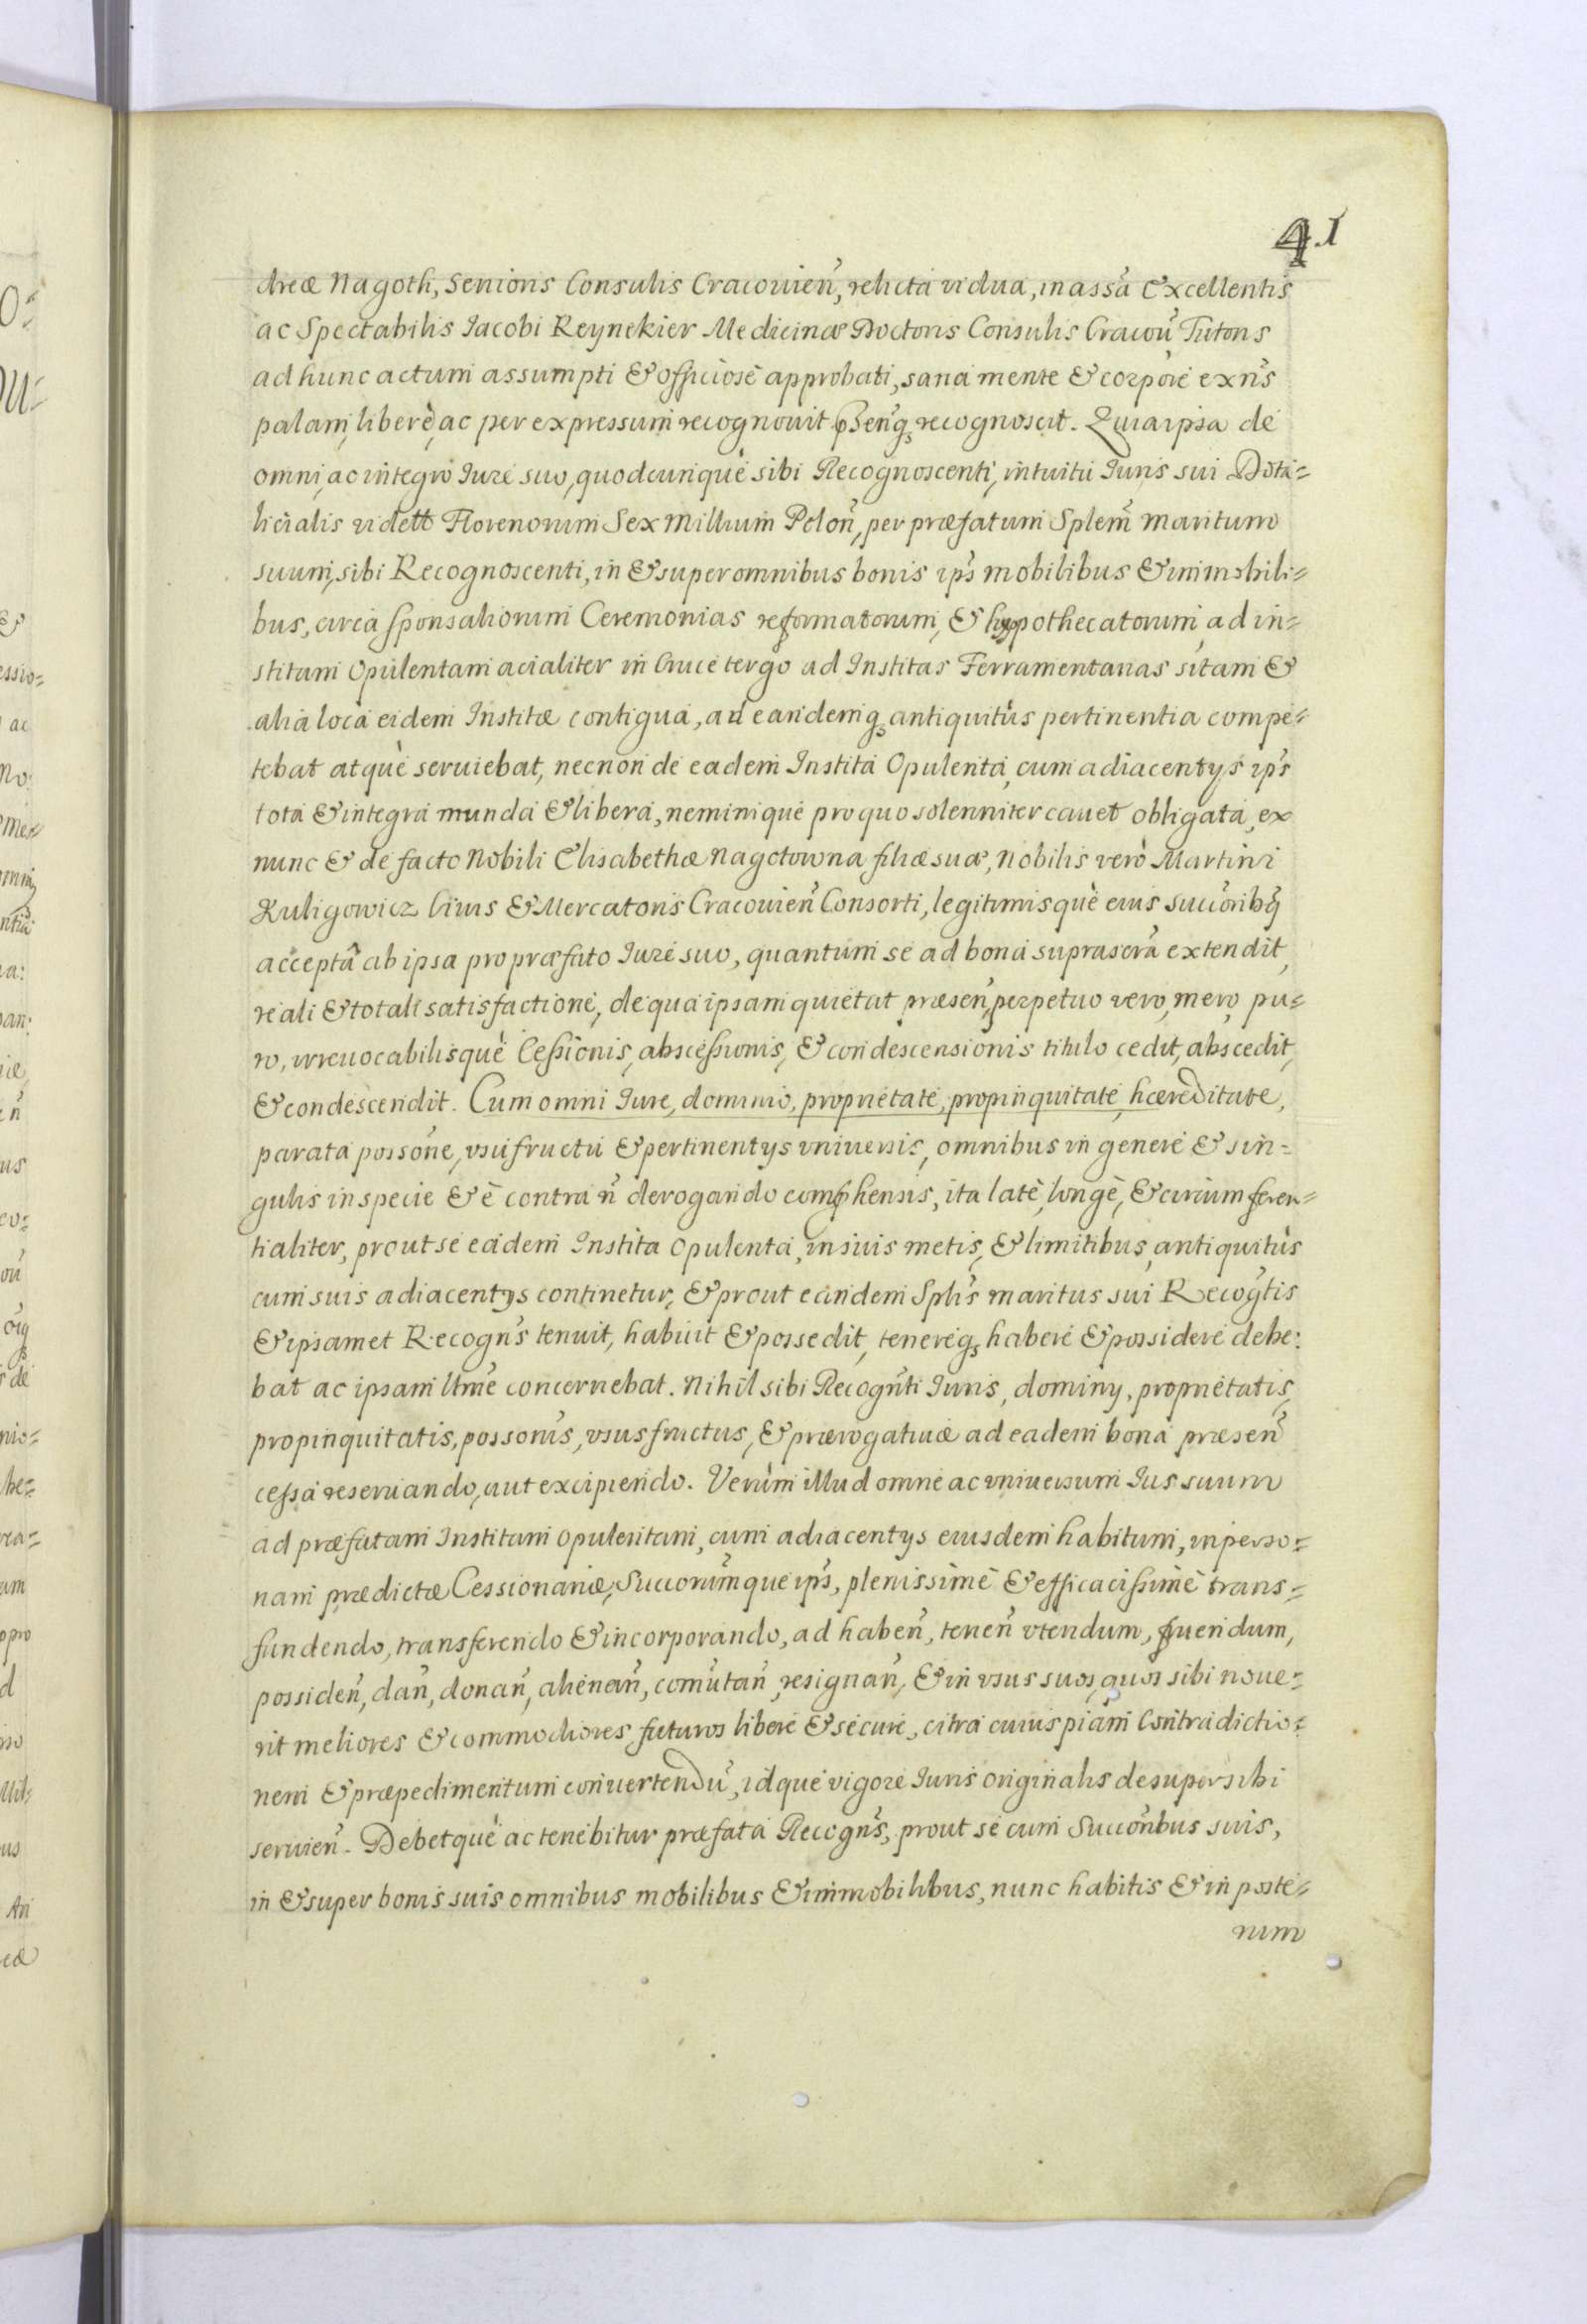 41
dreæ Nagoth, Senioris Consulis Cracouien̄, relicta vidua, in assā Excellentis
ac Spectabilis Iacobi Reynekier Medicinæ Doctoris Consulis Cracou̅ Tutoris
ad hunc actum assumpti & officiosè approbati, sana mente & corpore exn̄s
palam, liberè, ac per expressum recognouit pñsenq̢ recognoscit. Quia ipsa de
omni, ac integro Iure suo, quodcunque sibi Recognoscenti, intuitu Iuris sui Dota=
licialis vidett Florenorum Sex Millium Polon̄, per præfatum Splem̄ maritum
suum, sibi Recognoscenti, in & super omnibus bonis ip̄s mobilibus & immobili=
bus, circa sponsaliorum Ceremonias reformatorum, & hypothecatorum ad in=
stitam Opulentam acialiter in Cruce tergo ad Institas Ferramentarias sitam &
alia loca eidem Institæ contigua, ad eandemq̢ antiquitùs pertinentia compe=
tebat atquè seruiebat, necnon de eadem Instita Opulenta, cum adiacentÿs ip̄s
tota & integra munda & libera, neminique pro quo solenniter cauet obligata, ex
nunc & de facto Nobili Elisabethæ Nagotowna filiæ suæ, Nobilis verò Martini
Kuligowicz Ciuis & Mercatoris Cracouien̄ Consorti, legitimisquè eius succōribq̢
acceptâ ab ipsa pro præfato Iure suo, quantum se ad bona suprascrā extendit,
reali & totali satisfactione, de qua ipsam quietat præsen̄, perpetuo vero, mero, pu=
ro, irreuocabilisquè Cessionis, abscessionis, & condescensionis titulo cedit, abscedit,
& condescendit. Cum omni Iure, dominio, proprietate, propinquitate, hæreditate,
parata possōne, vsufructu & pertinentÿs vniuersis, omnibus in genere & sin=
gulis in specie & è contra n̄ derogando comphensis, ita latè, longè, & circumferen=
tialiter, prout se eadem Instita Opulenta, in suis metis, & limitibus, antiquitùs
cum suis adiacentÿs continetur, & prout eandem Splis̄ maritus sui Recogt̄is
& ipsamet Recogn̄s tenuit, habuit & possedit, tenereq̢ habere & possidere debe:
bat ac ipsam ltm̄e concernebat. Nihil sibi Recogn̄ti Iuris, dominÿ, proprietatis,
propinquitatis, possonis̄, vsusfructus, & prærogatiuæ ad eadem bona præsen̄
cessa reseruando, aut excipiendo. Verùm illud omne ac vniuersum Ius suum
ad præfatam Institam Opulentam, cum adiacentÿs eiusdem habitum, in perso=
nam prædictæ Cessionariæ, Succorum̄que ip̄s, plenissimè & efficacissimè trans=
fundendo, transferendo & incorporando, ad haben̄, tenen̄ vtendum, fruendum,
possiden̄, dan̄, donan̄, alienan̄, comūtan̄, resignan̄, & in vsus suos, quos sibi noue=
rit meliores & commodiores futuros liberè & secure, citra cuiuspiam Contradictio=
nem & præpedimentum conuertendū, idque vigore Iuris originalis desuper sibi
seruien̄. Debetquè ac tenebitur præfata Recogn̄s, prout se cum Succorībus suis,
in & super bonis suis omnibus mobilibus & immobilibus, nunc habitis & in poste=
rum